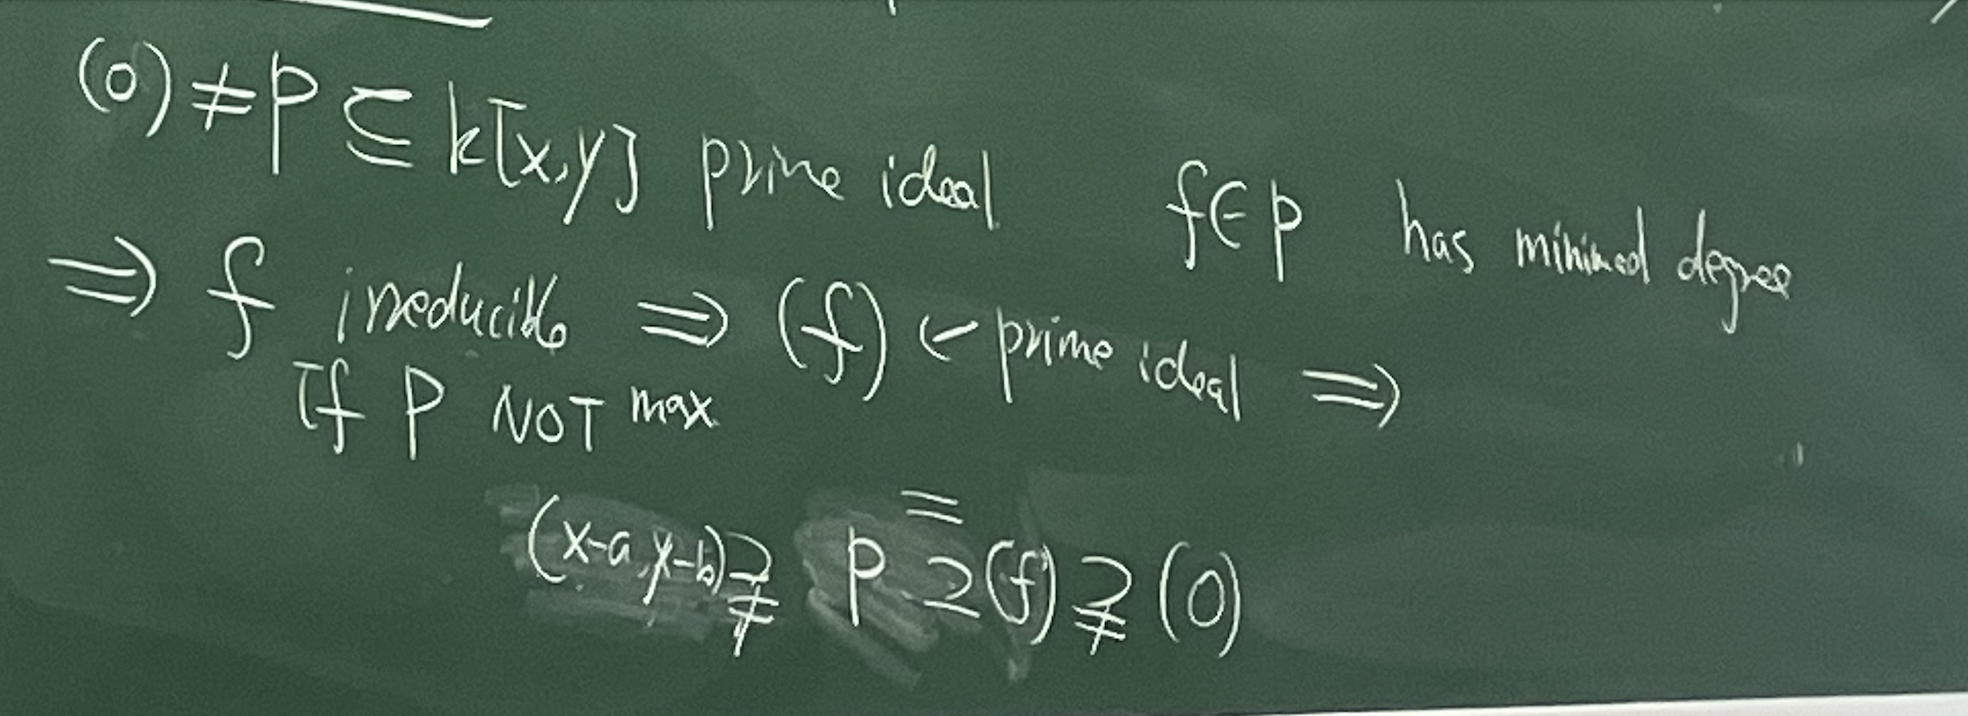 (0) ≠ P ⊆ k[x,y] prime ideal f∈P has minimal degree
⇒ f irreducible ⇒ (f) ← prime ideal ⇒
If P NOT max
=
(x-a, y-b) ⊋ P ⊇ (f) ⊋ (0)